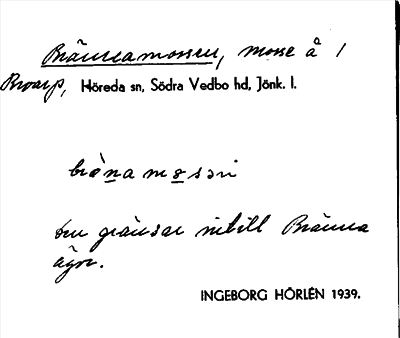 Brännamossen, mosse å 1
Broarp, Höreda sn, Södra Vedbo hd, Jönk. l.
bræ̀na mosən
den gränsar intill Bränna
ägor.
INGEBORG HÖRLÉN 1939.